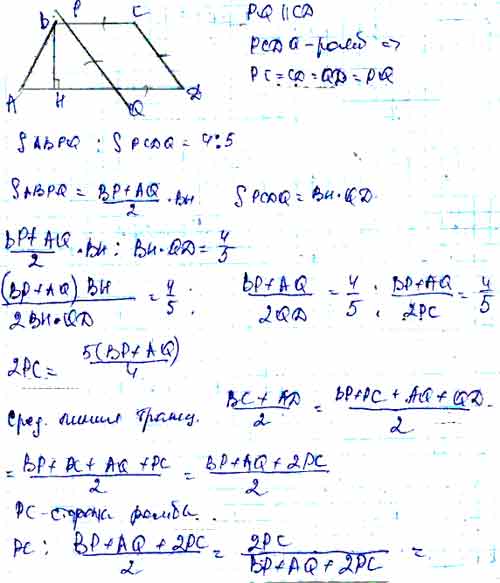 B P C
A H Q D
PQ || CD
PCDQ - ромб =>
PC = CD = QD = PQ
S ABPQ : S PCDQ = 4:5
S ABPQ = (BP + AQ)/2 · BH    S PCDQ = BH · QD
(BP + AQ)/2 · BH : BH · QD = 4/5
(BP + AQ) BH / 2BH · QD = 4/5 ; (BP + AQ)/2QD = 4/5 ; (BP + AQ)/2PC = 4/5
2PC = 5(BP + AQ)/4
Сред. линия трапец. (BC + AD)/2 = (BP + PC + AQ + QD)/2
= (BP + PC + AQ + PC)/2 = (BP + AQ + 2PC)/2
PC - сторона ромба.
PC : (BP + AQ + 2PC)/2 = 2PC/(BP + AQ + 2PC) =